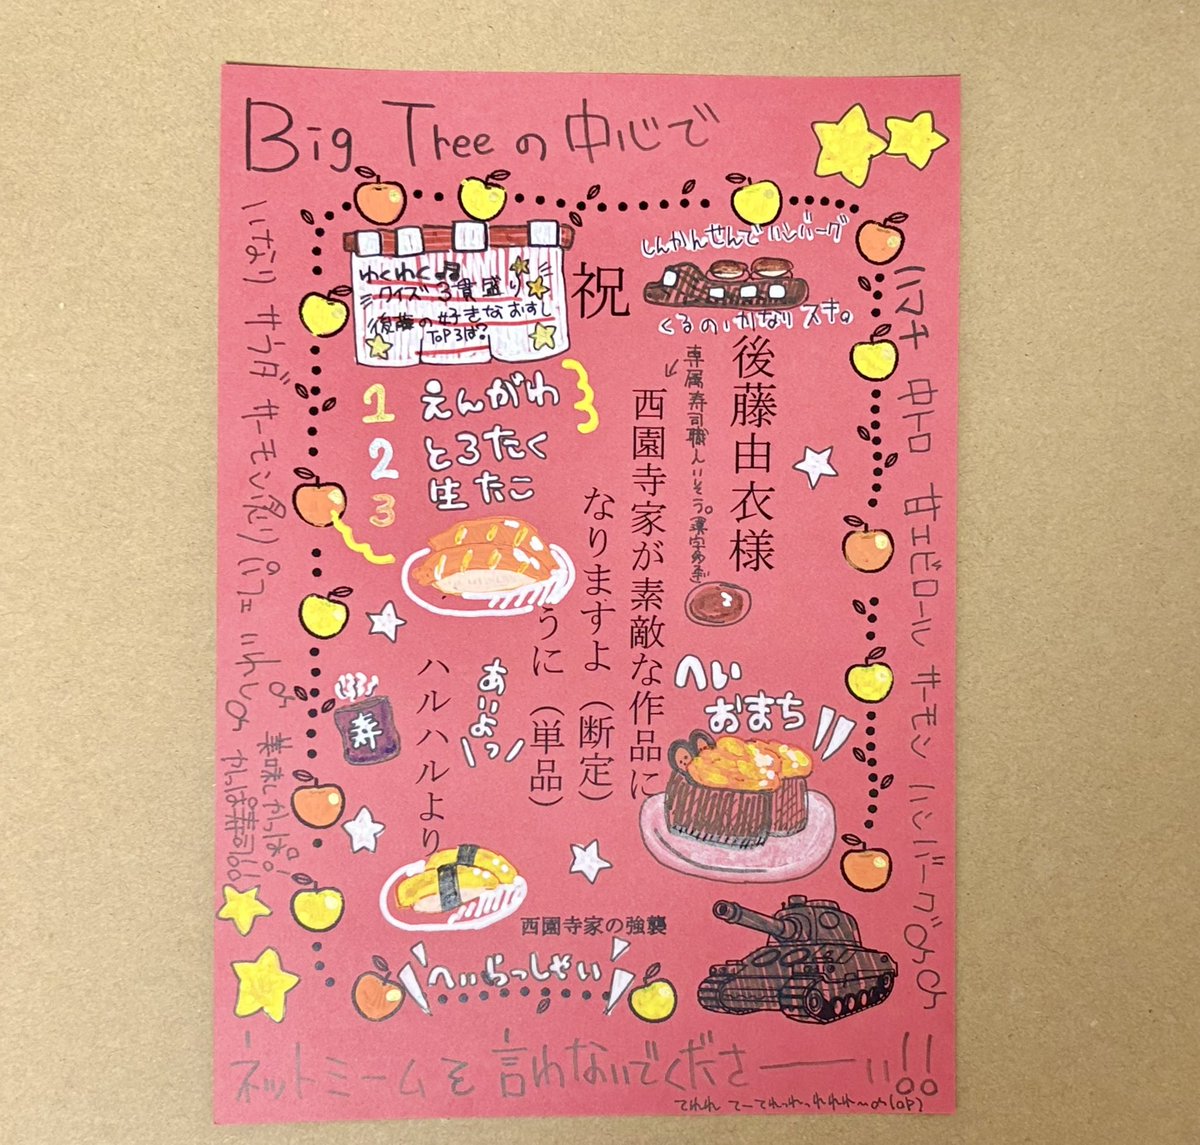 Big Treeの中心で
ハマチ 中トロ 甘エビ サーモン ハンバーグ
しんかんせんでハンバーグ
くるのいかなりスキ。
祝
わくわく
クイズ3貫盛り
後藤の好きなおすし
TOP3は?
1 えんがわ
2 とろたく
3 生たこ
後藤由衣様
専属寿司職人
西園寺家が素敵な作品に
なりますよ(断定)
うに(単品)
ハルハルより
へい
おまち
あいよっ
寿
西園寺家の強襲
へいらっしゃい
いなり サラダ サーモン
パフェ
美味しかっぱ
かっぱ寿司
ネットミームを言わないでくださーーい!!